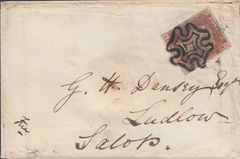 G. H. Dansey Esqr
Ludlow
Salop.